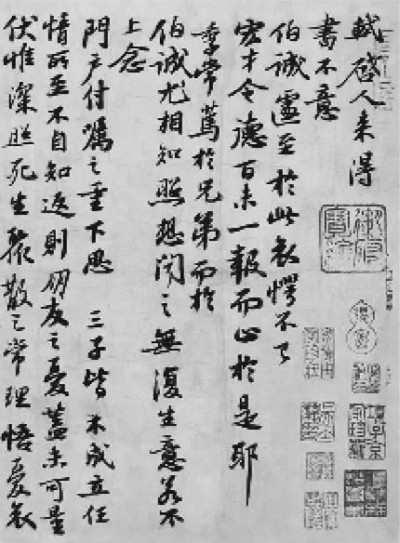 軾啓人来得
書不意
伯誠遽至於此哀愕不已
宏才令德百未一報而止於是耶
季常篤於兄弟而於
伯誠尤相知照想聞之無復生意若不
上念
門户付囑之重下思三子皆未成立任
情所至不自知返則朋友之憂蓋未可量
伏惟深照死生聚散之常理悟憂哀